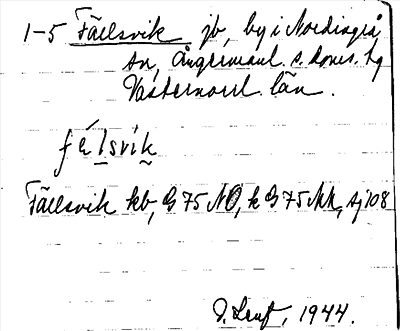 1-5 Fällsvik jb, by i Nordingrå
sn, Ångermanl. s. doms. hg
Västernorrl. län.
fälsvik
Fällsvik kb, G 75 NO, k G 75 NK, sj 108
1944.